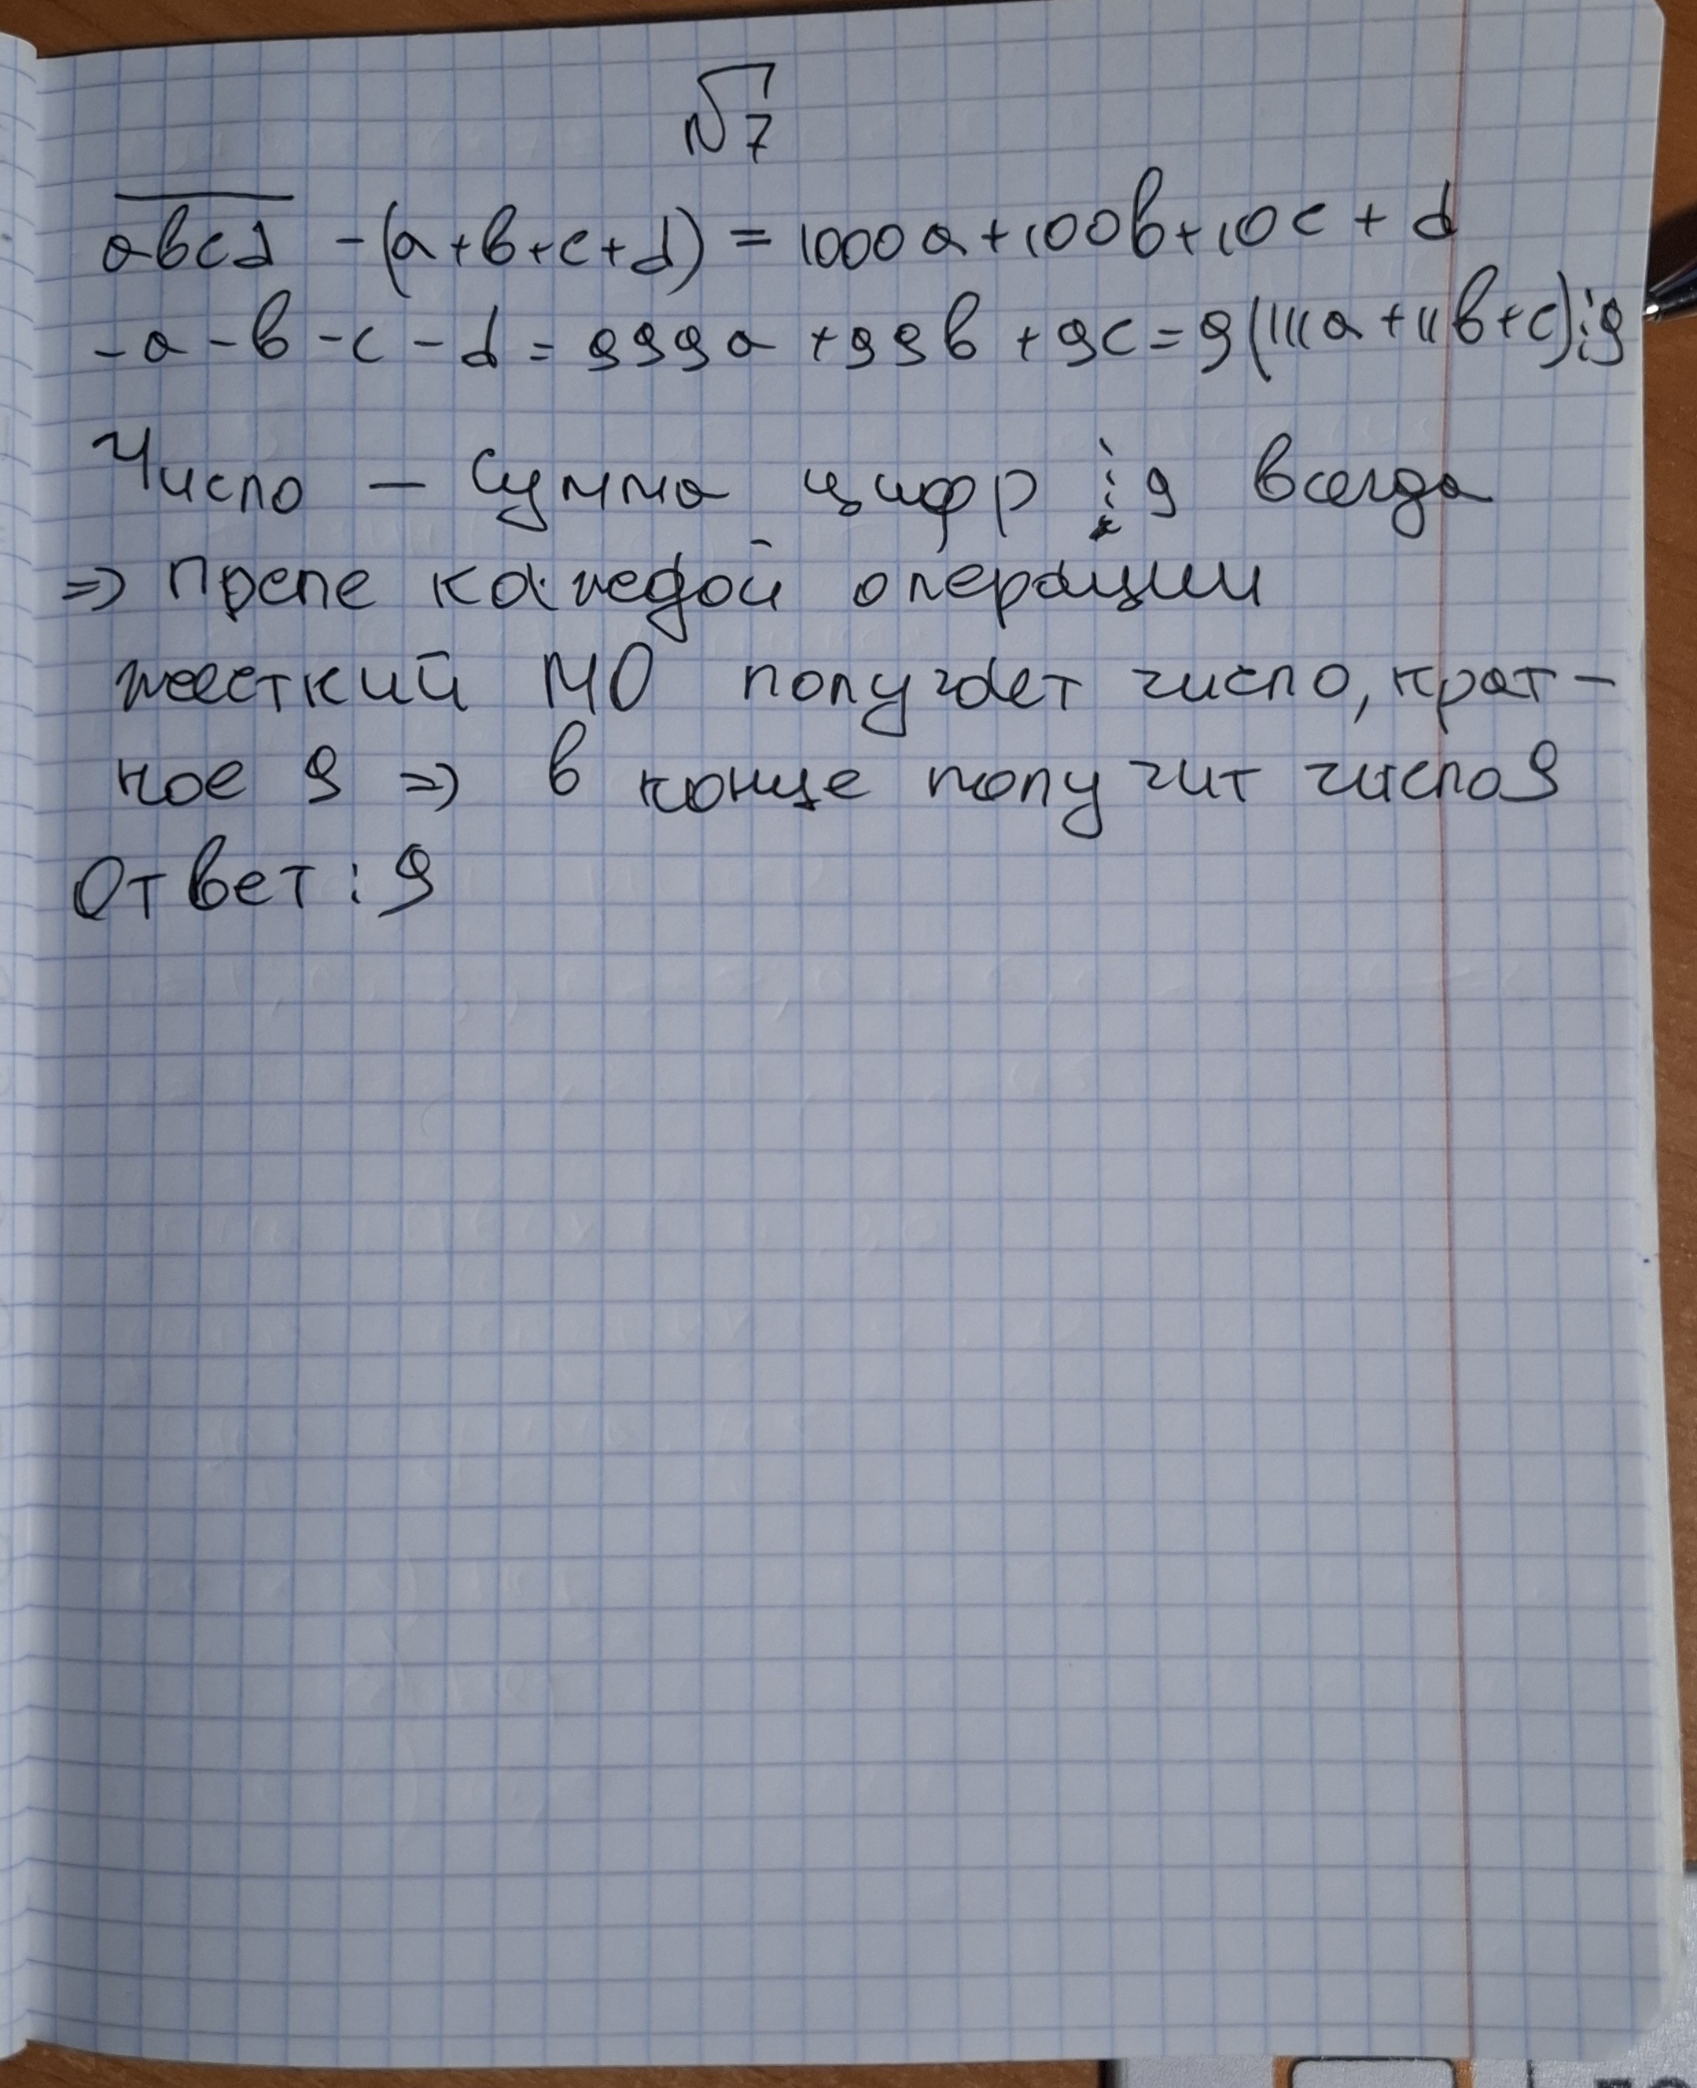 №7
abcd - (a+b+c+d) = 1000a+100b+10c+d
-a-b-c-d = 999a+99b+9c=9(111a+11b+c)⋮9
Число - сумма цифр ⋮ 9 всегда
=> после каждой операции
жесткий МО получает число, крат-
ное 9 => в конце получит число 9
Ответ: 9